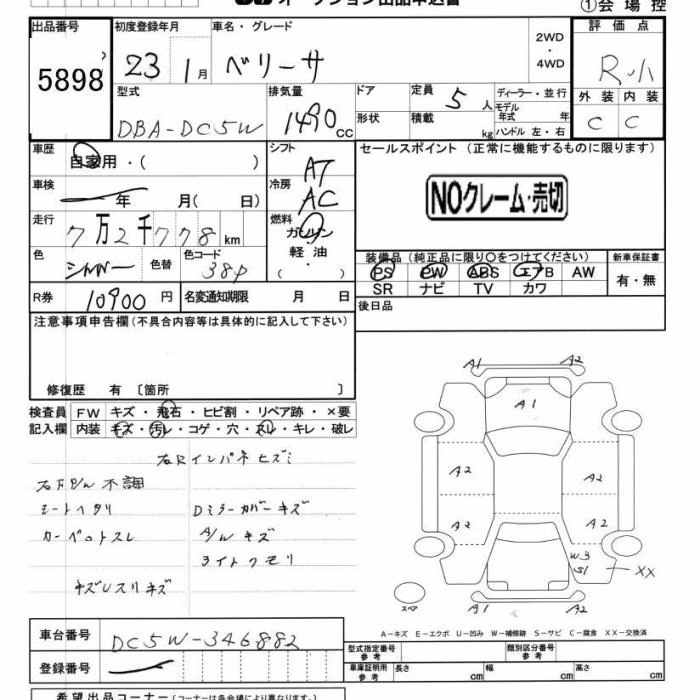 オークション出品申込書
①会場控
出品番号 初度登録年月 車名・グレード 2WD ・ 4WD 評価点
5898 23 1月 ベリーサ R
外装 内装
C C
型式 排気量 ドア 定員 5人 ディーラー・並行
DBA-DC5W 1490cc 形状 積載 kg モデル年式 年
ハンドル 左・右
車歴 自家用・( ) シフト AT セールスポイント (正常に機能するものに限ります)
車検 年 月( 日) 冷房 AC NOクレーム・売切
走行 7万2千778km 燃料 ガソリン・軽油・( )
色 シルバー 色替 色コード 38P
装備品 (純正品に限り〇をつけてください) 新車保証書
PS PW ABS エアB AW 有・無
SR ナビ TV カワ
R券 10900円 名変通知期限 月 日 後日品
注意事項申告欄(不具合内容等は具体的に記入して下さい)
修復歴 有 〔箇所 〕
検査員 FW キズ・飛石・ヒビ割・リペア跡・×要
記入欄 内装 キズ・汚レ・コゲ・穴・スレ・キレ・破レ
右Rインパネヒズミ
右F P/W 不調
シートヘタリ Dミラーカバーキズ
カーペットスレ A/Wキズ
ライトクモリ
キズUスリキズ
A1 A2
A1
A2 A2
A2 A2
W3
S1 XX
スペア A1 A2
A-キズ E-エクボ U-凹み W-補修跡 S-サビ C-腐食 XX-交換済
車台番号 DC5W-346882
登録番号
型式指定番号 参考 類別区分番号 参考
車庫証明用 参考 長さ cm 幅 cm 高さ cm
希望出品コーナー(コーナーは各会場により異なります。)